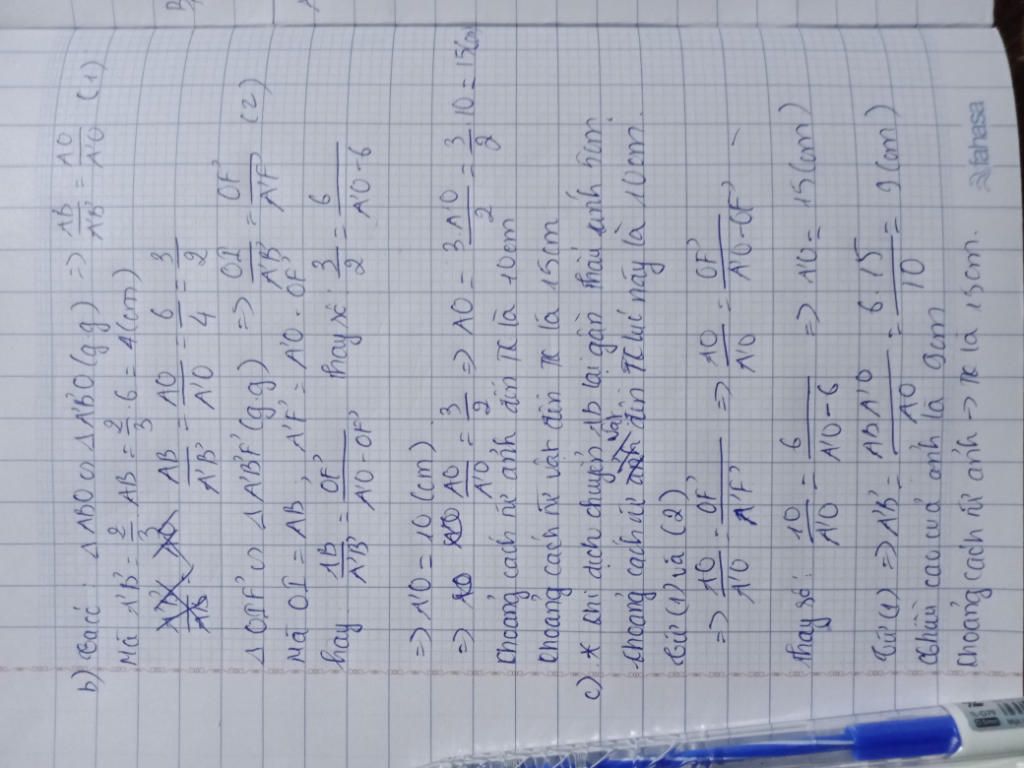 b) Ta có: Δ ABO ∽ Δ A'B'O (g.g) => AB/A'B' = AO/A'O (1)
Mà A'B' = 2/3 AB = 2/3 . 6 = 4 (cm)
AB/A'B' = AO/A'O = 6/4 = 3/2
Δ OIF' ∽ Δ A'B'F' (g.g) => OI/A'B' = OF'/A'F' (2)
Mà OI = AB, A'F' = A'O - OF'
hay AB/A'B' = OF'/A'O-OF' Thay số: 3/2 = 6/A'O-6
=> A'O = 10 (cm)
=> AO/A'O = 3/2 => AO = 3.A'O/2 = 3/2.10 = 15(cm)
Khoảng cách từ ảnh đến TK là 10cm
Khoảng cách từ vật đến TK là 15cm
c) * Khi dịch chuyển AB lại gần thấu kính 5cm.
Khoảng cách từ vật đến TK lúc này là 10cm.
Từ (1) và (2)
=> AO/A'O = OF'/A'F' => AO/A'O = OF'/A'O-OF'
Thay số: 10/A'O = 6/A'O-6 => A'O = 15(cm)
Từ (1) => A'B' = AB.A'O/AO = 6.15/10 = 9(cm)
Chiều cao của ảnh là 9cm
Khoảng cách từ ảnh -> TK là 15cm.
fahasa